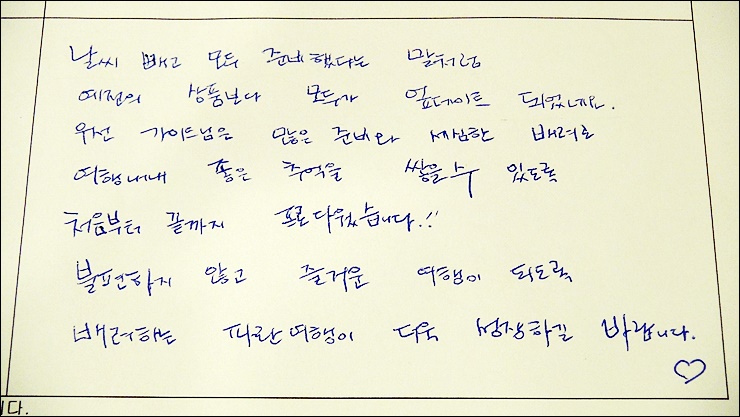 날씨 빼고 모두 준비했다는 말처럼
예전의 상품보다 모두가 업데이트 되었네요.
우선 가이드님은 많은 준비와 세심한 배려로
여행내내 좋은 추억을 쌓을 수 있도록
처음부터 끝까지 프로다웠습니다!!
불편하지 않고 즐거운 여행이 되도록
배려하는 파란여행이 더욱 성장하길 바랍니다.
♡
니다.